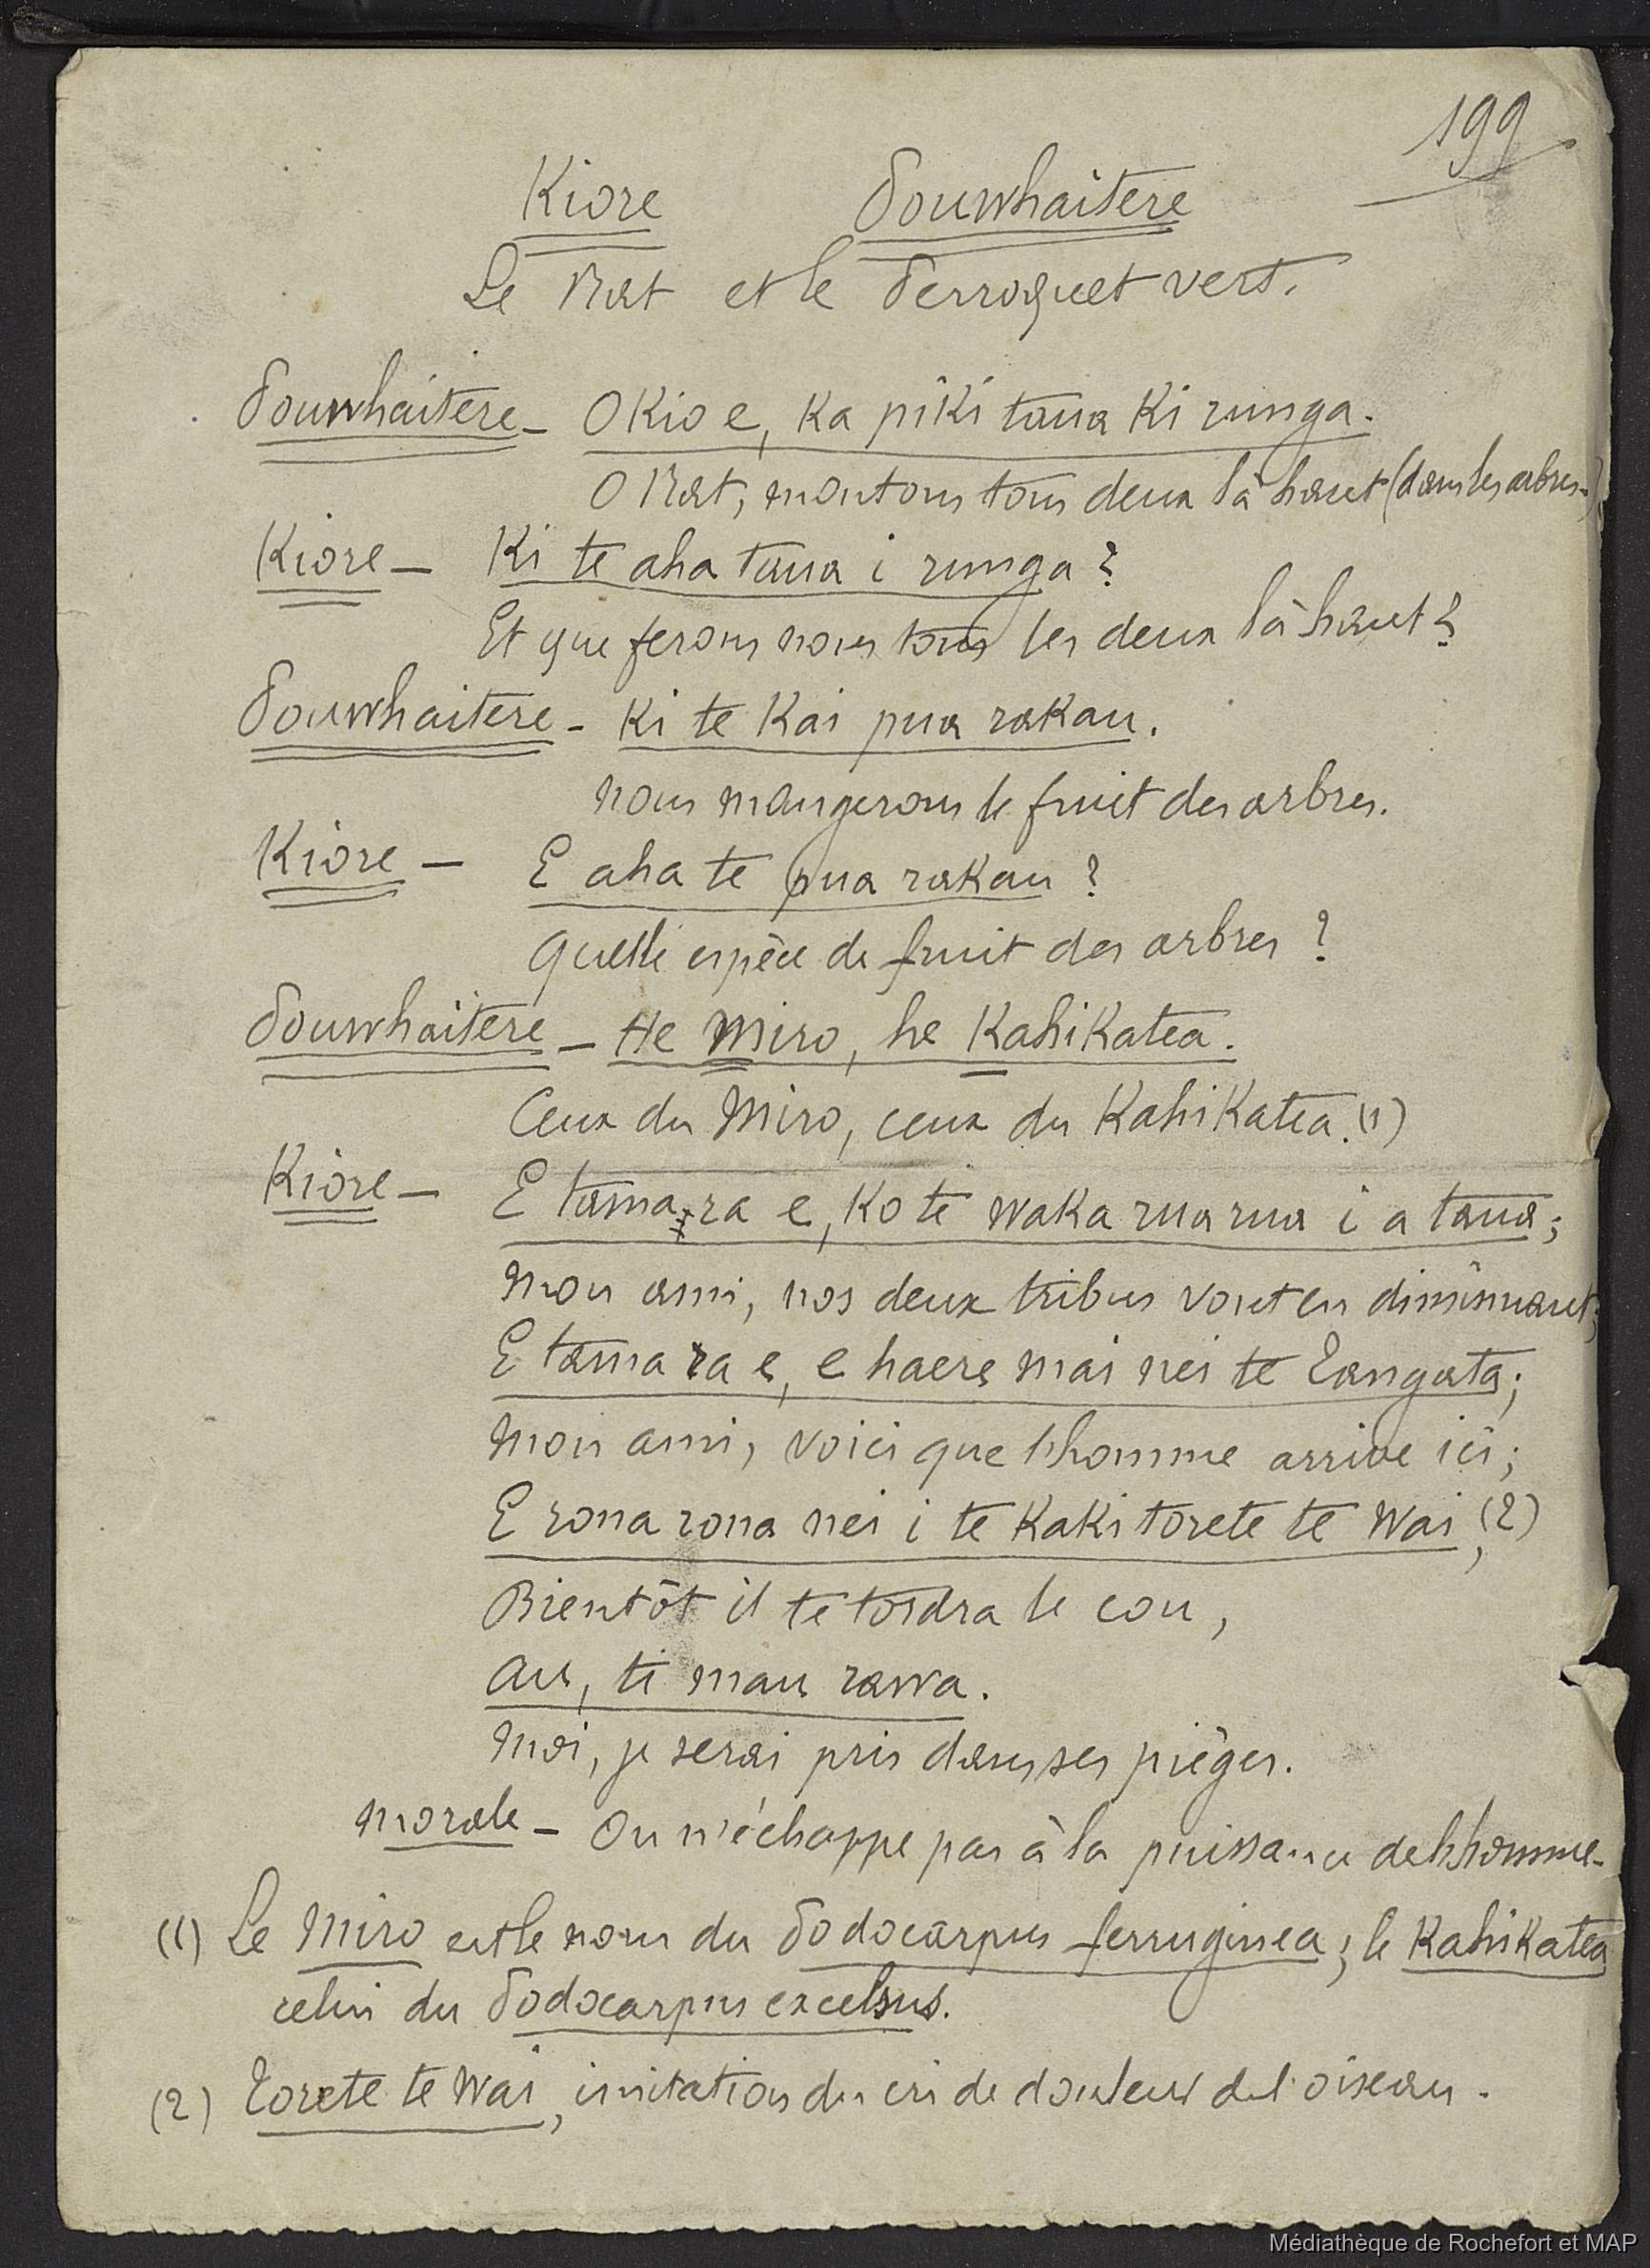 199
Kiore Pouwhaitere
Le Rat et le Perroquet vert.
Pouwhaitere - O Kio e, Ka piki taua Ki runga.
O Rat, montons tous deux là haut (dans les arbres.)
Kiore - Ki te aha taua i runga ?
Et que ferons nous tous les deux là haut ?
Pouwhaitere - Ki te Kai pua rakau.
nous mangerons le fruit des arbres.
Kiore - E aha te pua rakau ?
Quelle espèce de fruit des arbres ?
Pouwhaitere - He Miro, he Kahikatea.
Ceux du Miro, ceux du Kahikatea. (1)
Kiore - E tama ra e, Ko te waka rua rua i a taua ;
Mon ami, nos deux tribus vont en diminuant ;
E tama ra e, e haere mai nei te Tangata ;
Mon ami, voici que l'homme arrive ici ;
E rona rona nei i te Kaki torete te Wai, (2)
Bientôt il te tordra le cou,
au, ti mau rawa.
Moi, je serai pris dans ses pièges.
Morale - On n'échappe pas à la puissance de l'homme.
(1) Le Miro est le nom du Podocarpus ferruginea ; le Kahikatea
celui du Podocarpus excelsus.
(2) Torete te Wai, imitation du cri de douleur de l'oiseau.
Médiathèque de Rochefort et MAP